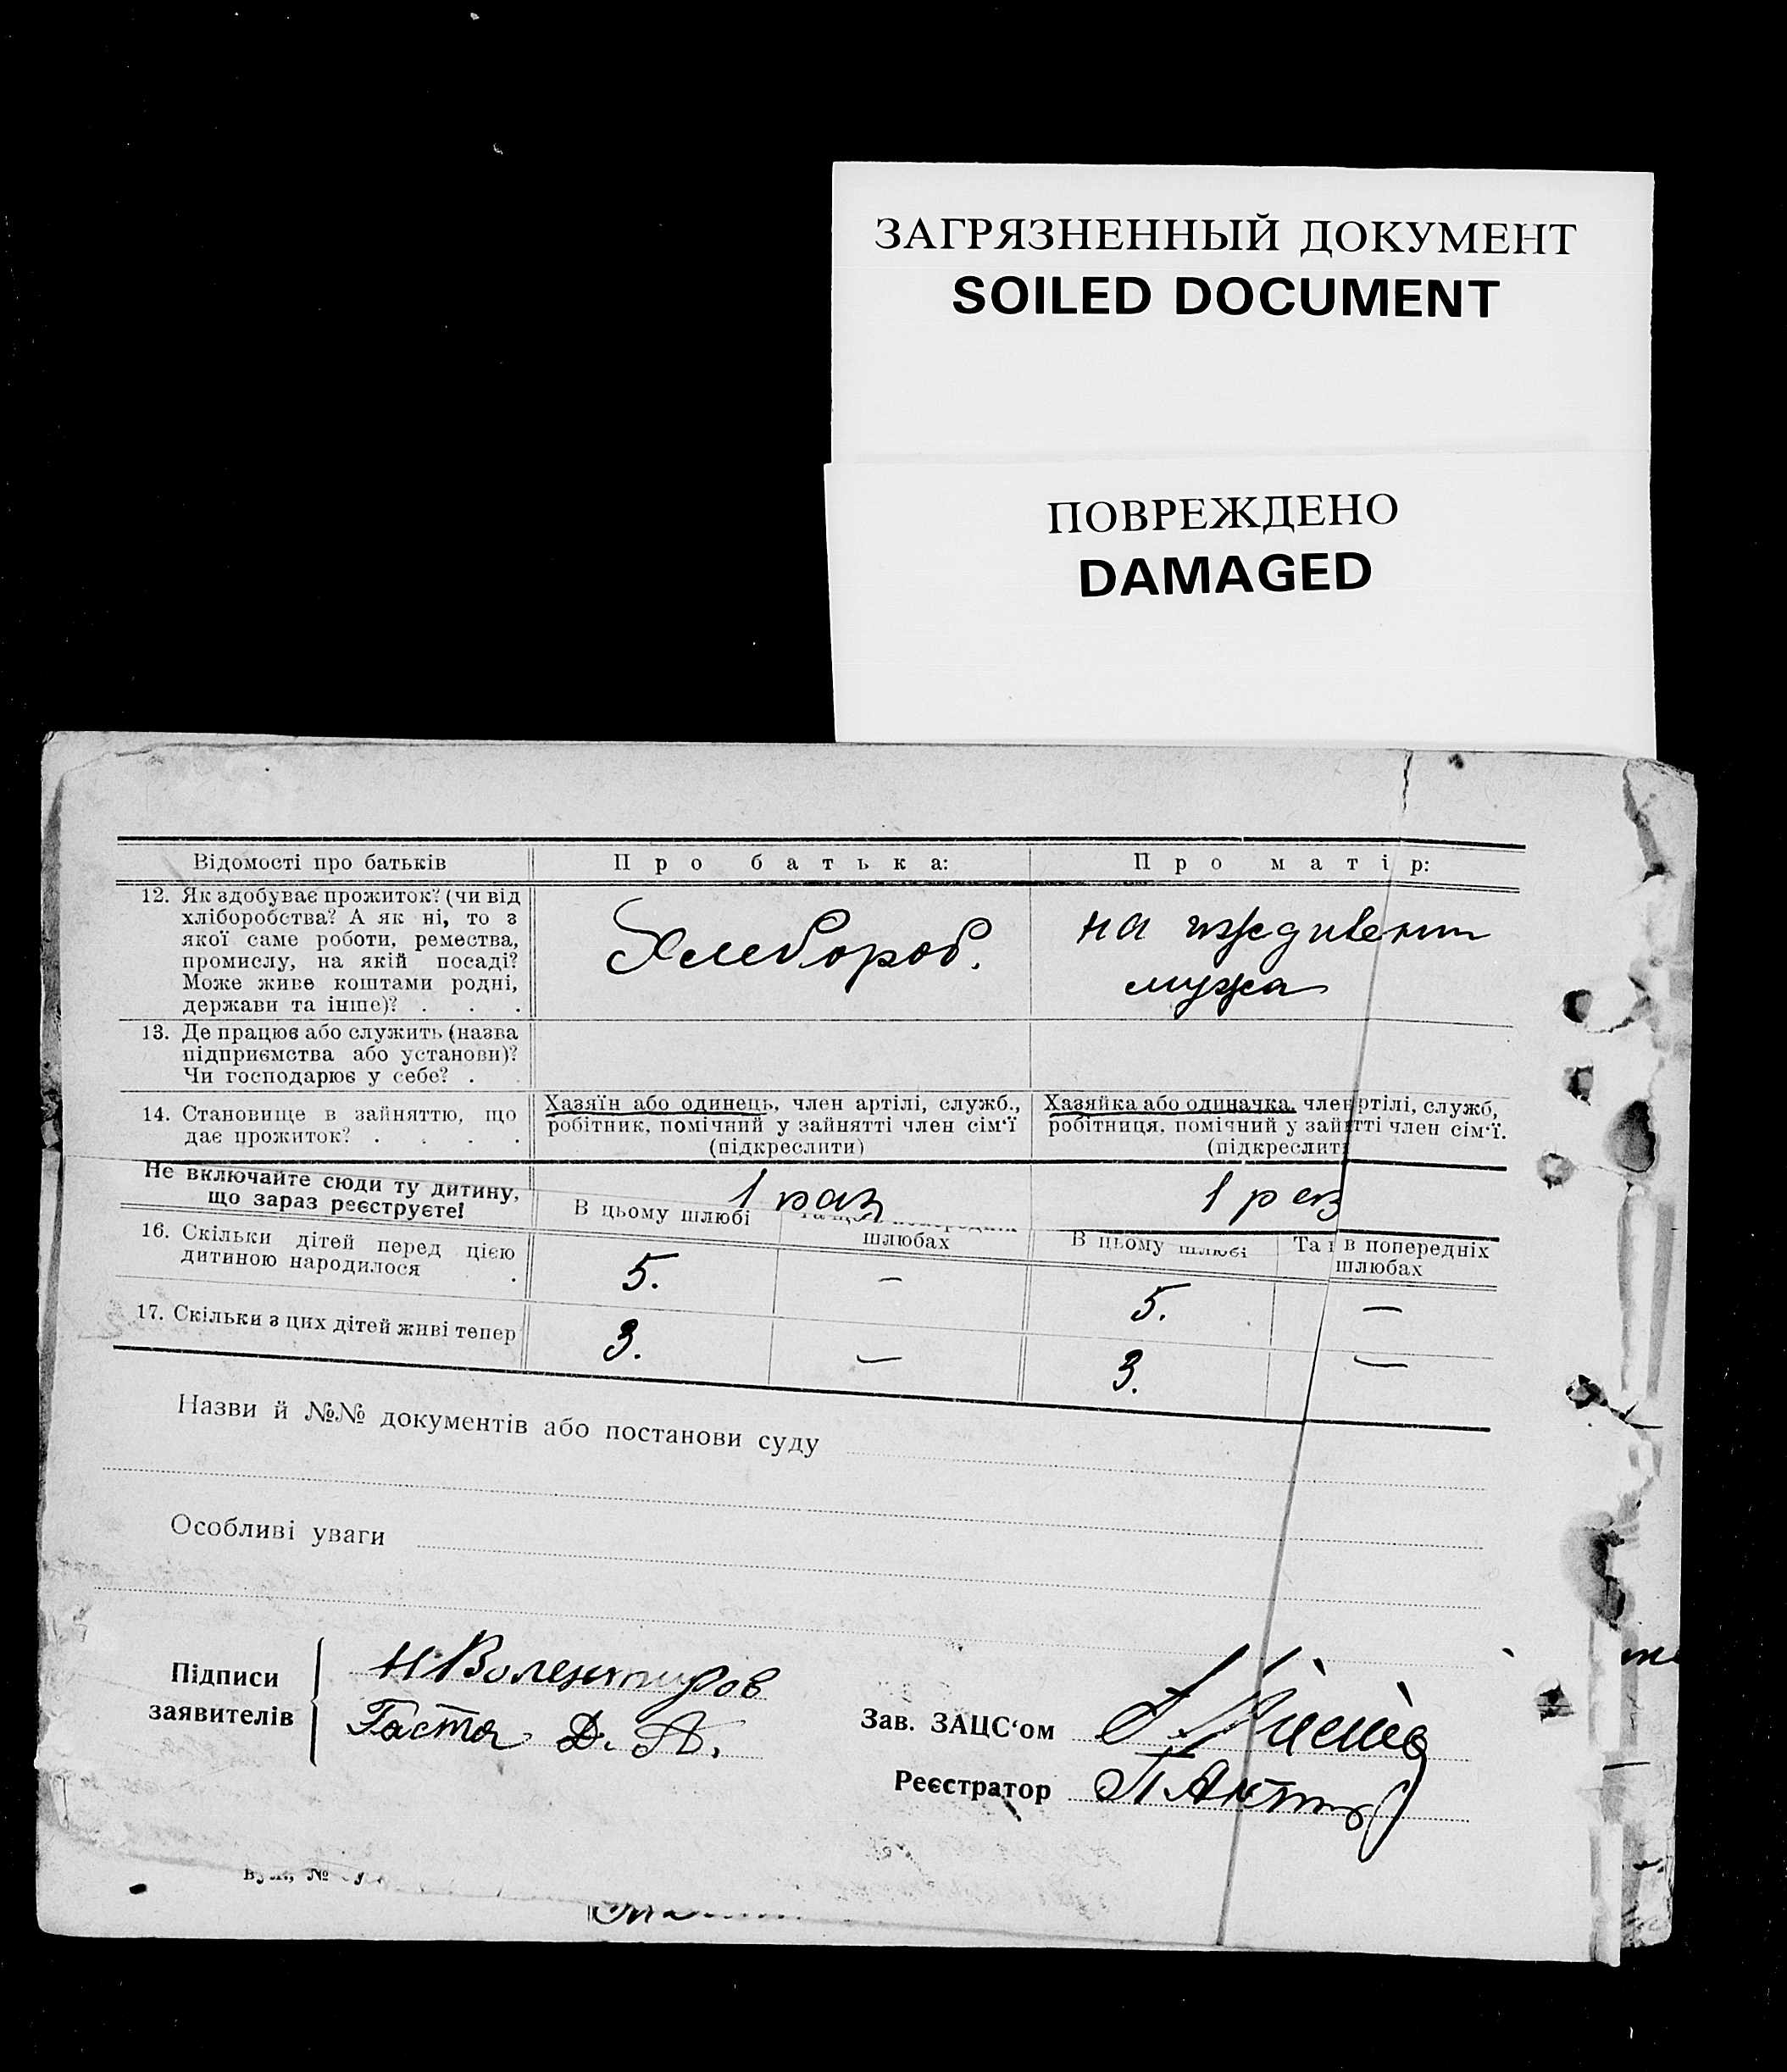 ЗАГРЯЗНЕННЫЙ ДОКУМЕНТ
SOILED DOCUMENT
ПОВРЕЖДЕНО
DAMAGED
Відомості про батьків
Про батька:
Про матір:
12. Як здобуває прожиток? (чи від
хліборобства? А як ні, то з
якої саме роботи, ремества,
промислу, на якій посаді?
Може живе коштами родні,
держави та інше)? . . .
Хлебороб.
на иждивении
мужа
13. Де працює або служить (назва
підприємства або установи)?
Чи господарює у себе? .
14. Становище в зайняттю, що
дає прожиток? . . . .
Хазяїн або одинець, член артілі, служб.,
робітник, помічний у зайнятті член сім'ї
(підкреслити)
Хазяйка або одиначка, член ртілі, служб,
робітниця, помічний у зайнятті член сім'ї.
(підкреслити
Не включайте сюди ту дитину,
що зараз реєструєте!
1 раз
1 раз
В цьому шлюбі
шлюбах
В цьому шлюбі
Та в попередніх
шлюбах
16. Скільки дітей перед цією
дитиною народилося .
5. –
5. –
17. Скільки з цих дітей живі тепер
3. –
3. –
Назви й №№ документів або постанови суду
Особливі уваги
Підписи
заявителів
Н. Волентиров
Гаста Д. А.
Зав. ЗАЦС'ом
Реєстратор